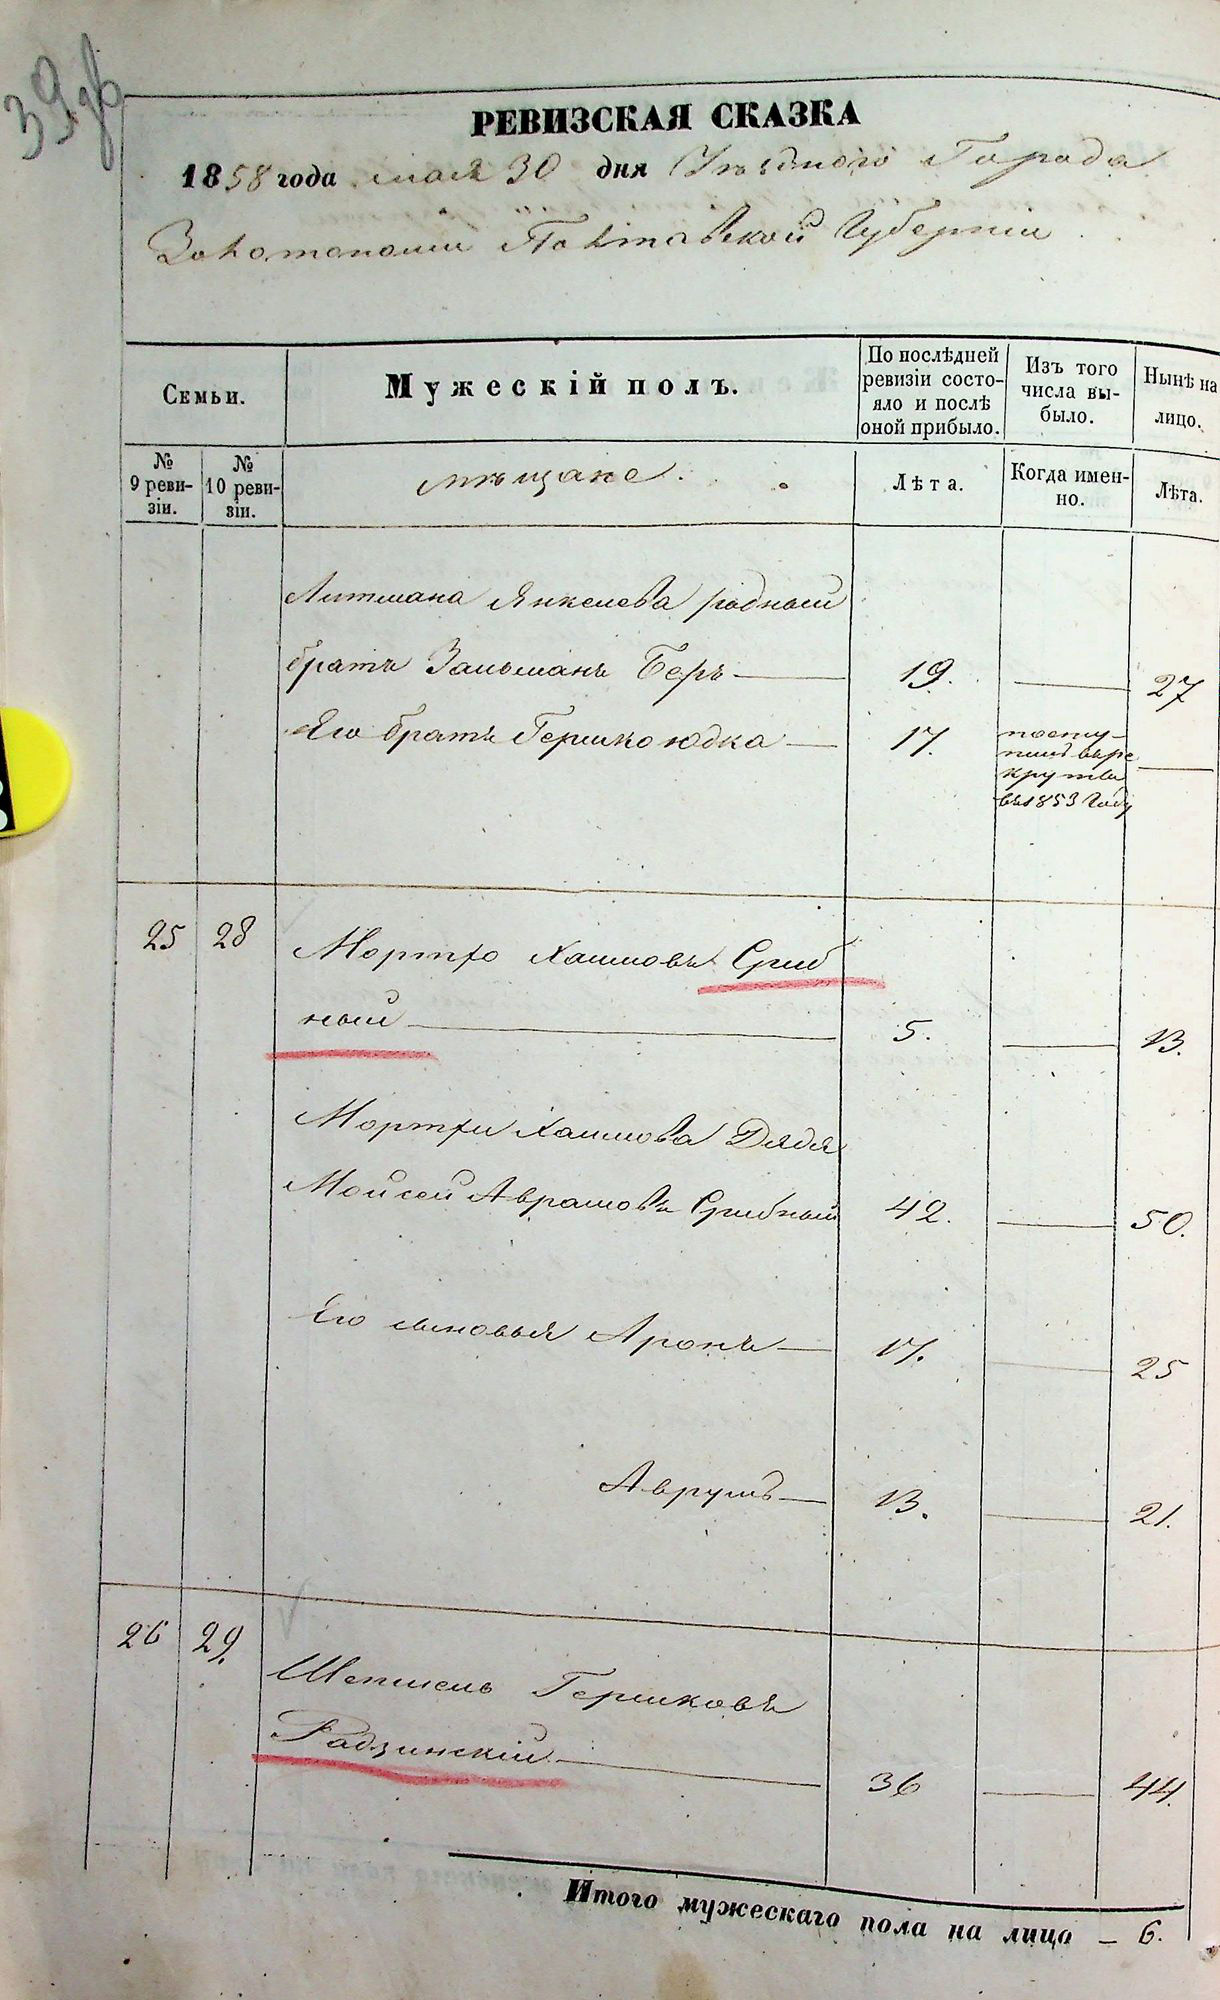 39 об
РЕВИЗСКАЯ СКАЗКА
1858 года мая 30 дня Уѣзднаго Города
Золотоноши Полтавской Губерніи
Семьи.
Мужескій полъ.
По послѣдней ревизіи состояло и послѣ оной прибыло.
Изъ того числа выбыло.
Нынѣ на лицо.
№ 9 ревизіи.
№ 10 ревизіи.
мѣщане.
Лѣта.
Когда именно.
Лѣта.
Литмана Янкелева родный
братъ Зальманъ Беръ — 19. — 27
Его братъ Гершко Юдка — 17. поступилъ въ рекруты въ 1853 Году —
25 28 Мортхо Хаимовъ Сриб
ный — 5. — 13.
Мортхи Хаимова Дядя
Мойсей Аврамовъ Срибный 42. — 50.
Его сыновья Аронъ — 17. — 25
Аврумъ — 13. — 21.
26 29. Шепшель Гершковъ
Радзинскій — 36 — 44.
Итого мужескаго пола на лицо — 6.